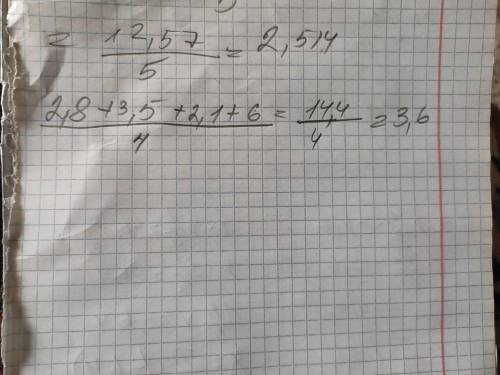 = 12,57/5 = 2,514
2,8+3,5+2,1+6/4 = 14,4/4 = 3,6